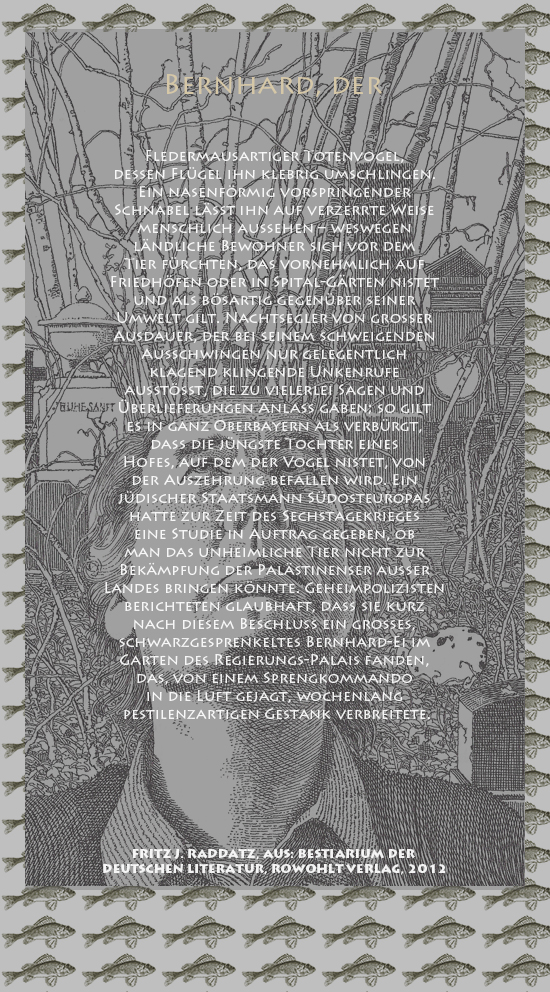 Bernhard, der
Fledermausartiger Totenvogel,
dessen Flügel ihn klebrig umschlingen.
Ein nasenförmig vorspringender
Schnabel lässt ihn auf verzerrte Weise
menschlich aussehen – weswegen
ländliche Bewohner sich vor dem
Tier fürchten, das vornehmlich auf
Friedhöfen oder in Spital-Gärten nistet
und als bösartig gegenüber seiner
Umwelt gilt. Nachtsegler von grosser
Ausdauer, der bei seinem schweigenden
Ausschwingen nur gelegentlich
klagend klingende Unkenrufe
ausstösst, die zu vielerlei Sagen und
Überlieferungen Anlass gaben; so gilt
es in ganz Oberbayern als verbürgt,
dass die jüngste Tochter eines
Hofes, auf dem der Vogel nistet, von
der Auszehrung befallen wird. Ein
jüdischer Staatsmann Südosteuropas
hatte zur Zeit des Sechstagekrieges
eine Studie in Auftrag gegeben, ob
man das unheimliche Tier nicht zur
Bekämpfung der Palästinenser ausser
Landes bringen könnte. Geheimpolizisten
berichteten glaubhaft, dass sie kurz
nach diesem Beschluss ein grosses,
schwarzgesprenkeltes Bernhard-Ei im
Garten des Regierungs-Palais fanden,
das, von einem Sprengkommando
in die Luft gejagt, wochenlang
pestilenzartigen Gestank verbreitete.
RUHE SANFT
Fritz J. Raddatz, aus: Bestiarium der
deutschen Literatur, Rowohlt Verlag, 2012